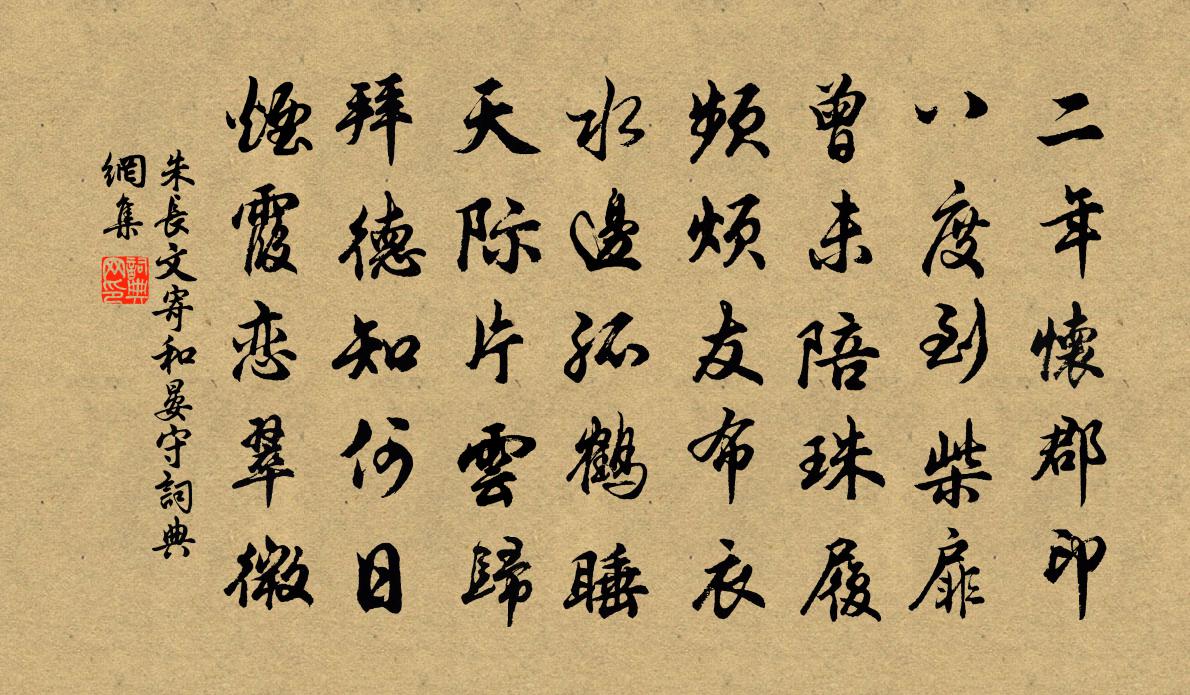 二年懷郡印
八度到柴扉
曾未陪珠履
頻煩友布衣
水邊孤鶴睡
天际片雲歸
拜德知何日
煙霞恋翠微
朱長文寄和晏守詞典
網集
詞典
网印